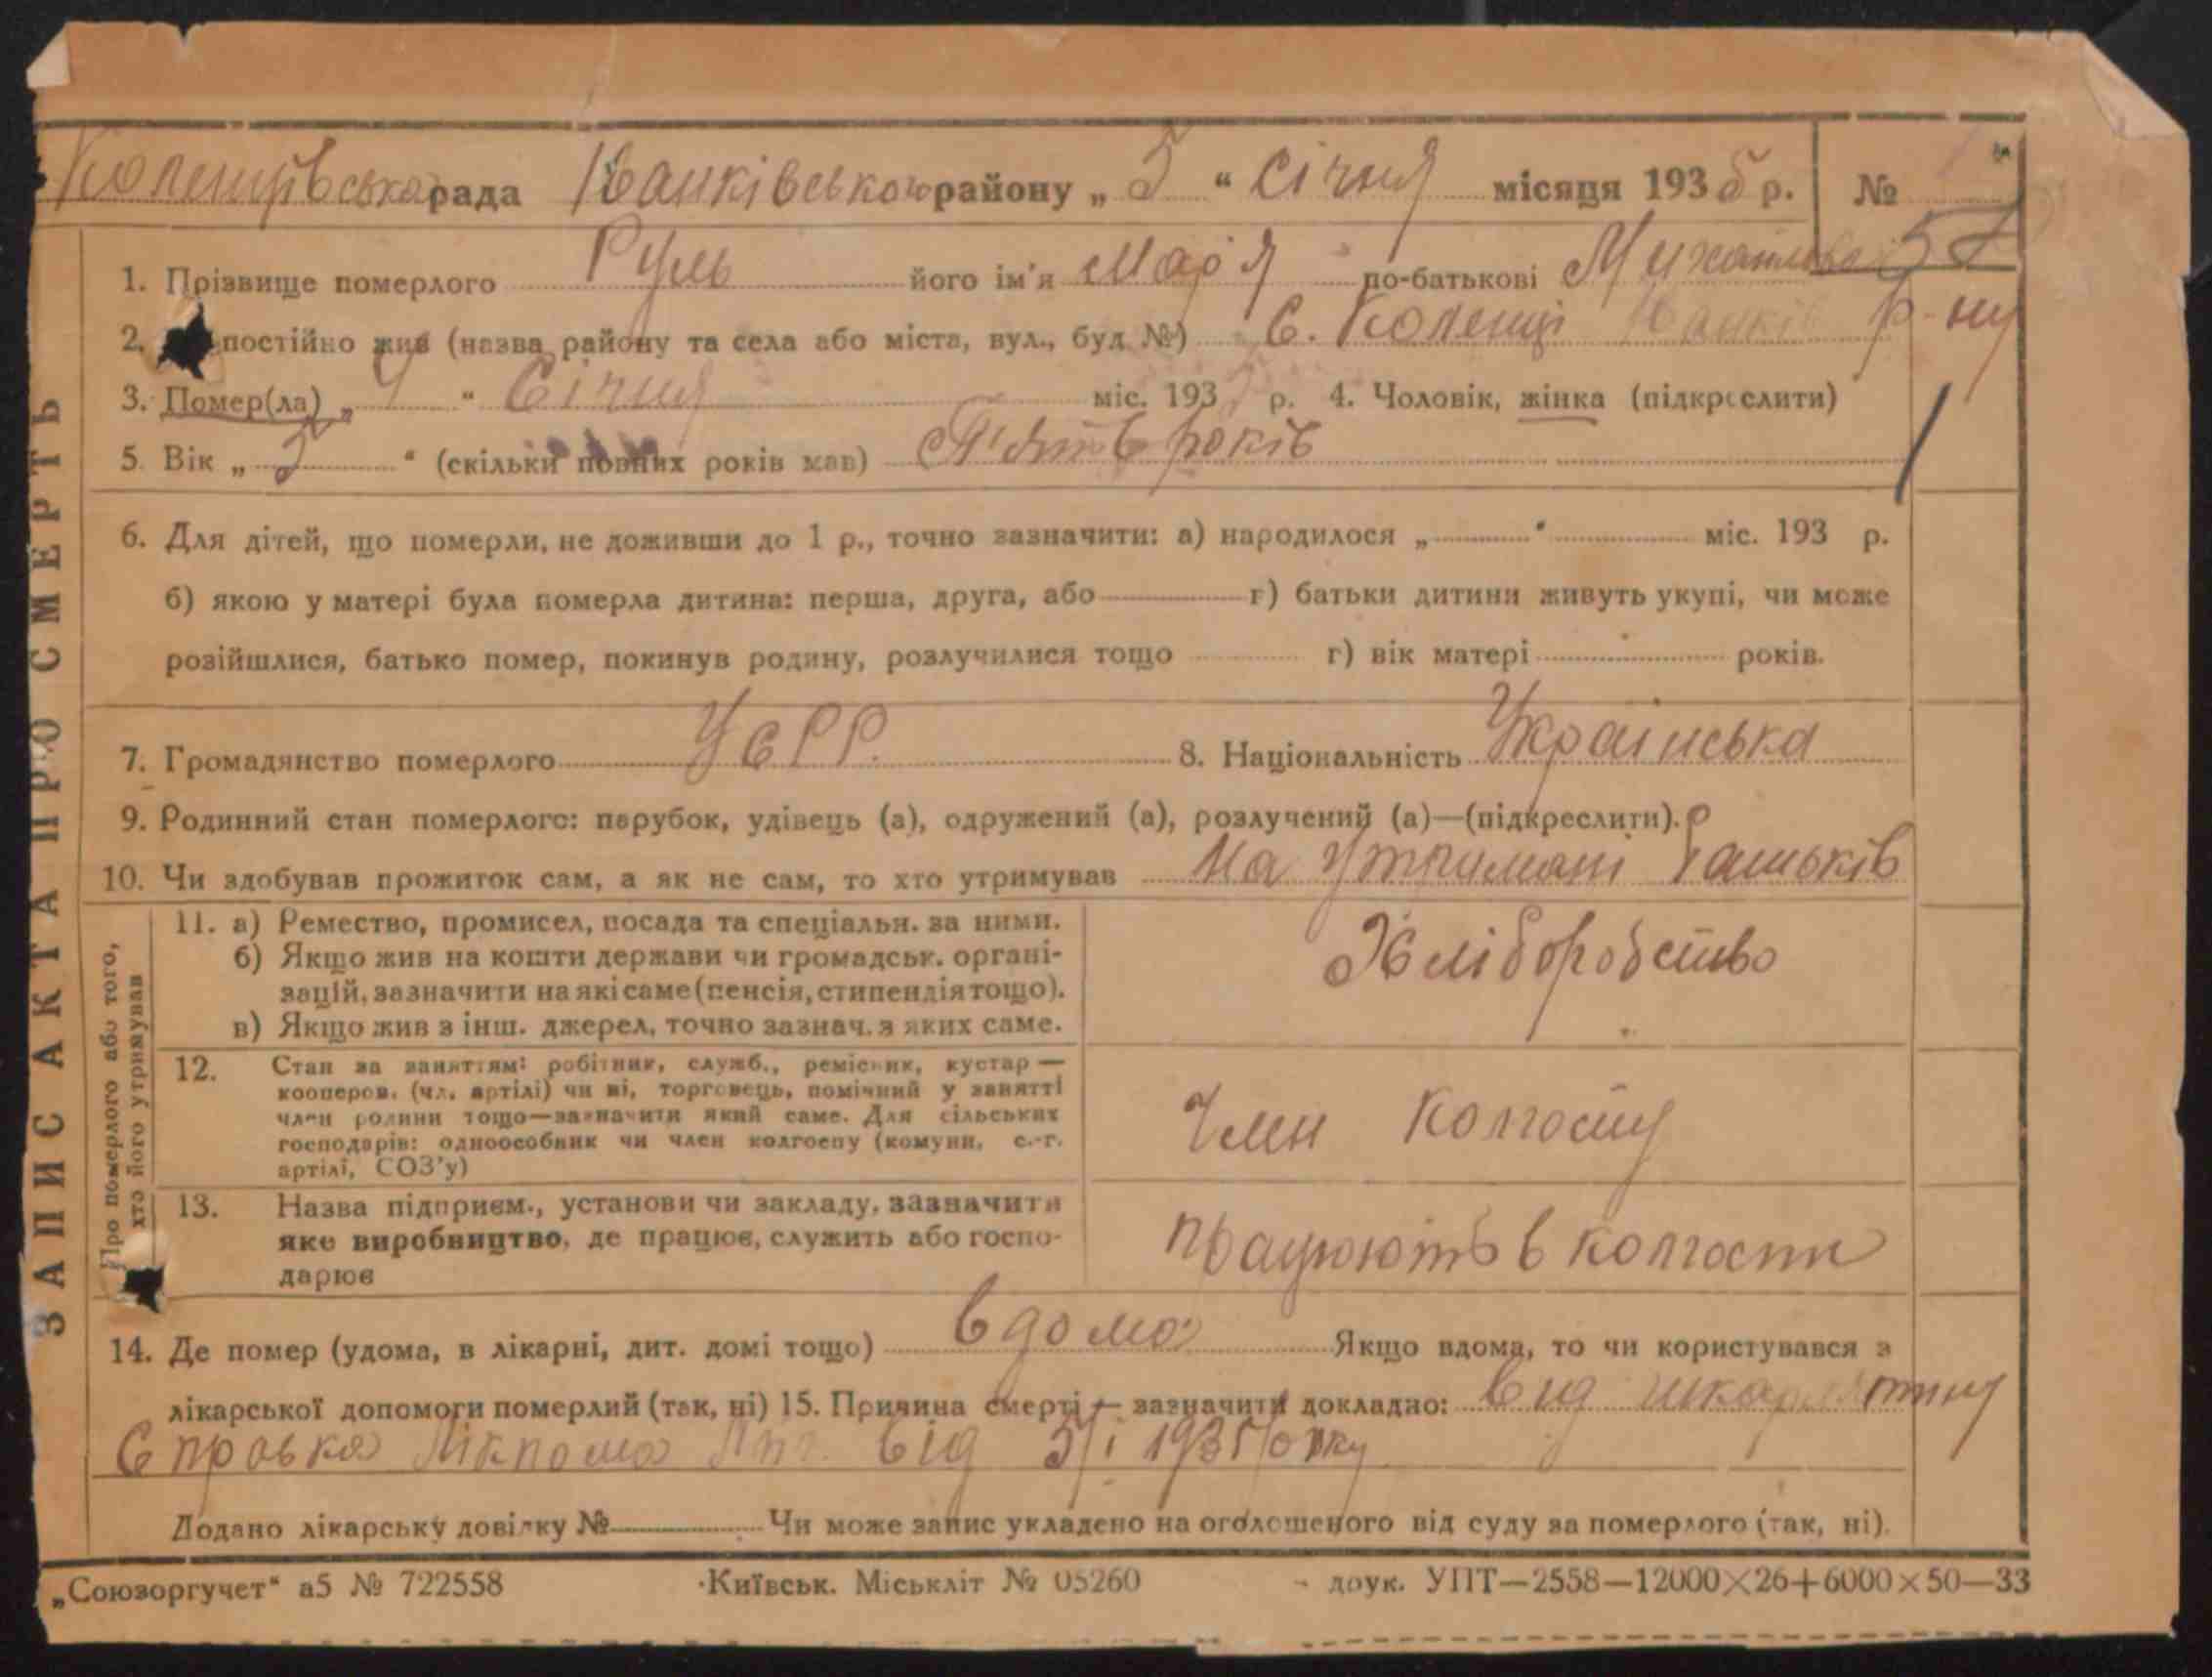 Коленцівська рада Іванківського району „ 5 “ Січня місяця 1935 р. №
1. Прізвище померлого Руль його ім'я Марія по-батькові
2. постійно жив (назва району та села або міста, вул., буд №) с. Коленці р-ну
3. Помер(ла) „ 4 “ Січня міс. 193 р. 4. Чоловік, жінка (підкреслити)
5. Вік „ 5 “ (скільки повних років мав) П'ять років
6. Для дітей, що померли, не доживши до 1 р., точно зазначити: а) народилося „ “ міс. 193 р.
б) якою у матері була померла дитина: перша, друга, або г) батьки дитини живуть укупі, чи може
розійшлися, батько помер, покинув родину, розлучилися тощо г) вік матері років.
7. Громадянство померлого УСРР. 8. Національність Українська
9. Родинний стан померлого: парубок, удівець (а), одружений (а), розлучений (а)—(підкреслити).
10. Чи здобував прожиток сам, а як не сам, то хто утримував на утримані батьків
11. а) Ремество, промисел, посада та спеціальн. за ними.
б) Якщо жив на кошти держави чи громадськ. органі-
зацій, зазначити на які саме (пенсія, стипендія тощо).
в) Якщо жив з інш. джерел, точно зазнач. з яких саме.
Хліборобство
12. Стан за заняттям: робітник, служб., ремісник, кустар —
кооперов. (чл. артілі) чи ні, торговець, помічний у занятті
член родини тощо—зазначити який саме. Для сільських
господарів: одноособник чи член колгоспу (комуни, с.-г.
артілі, СОЗ'у)
Член колгоспу
13. Назва підприєм., установи чи закладу, зазначити
яке виробництво, де працює, служить або госпо-
дарює
працюють в колгоспи
14. Де помер (удома, в лікарні, дит. домі тощо) вдома Якщо вдома, то чи користувався з
лікарської допомоги померлий (так, ні) 15. Причина смерті — зазначити докладно: від шкарлятини
Справка Лікпома від 5/I 1935 року
Додано лікарську довідку № Чи може запис укладено на оголошеного від суду за померлого (так, ні).
„Союзоргучет“ а5 № 722558 Київськ. Міськліт № 05260 друк. УПТ—2558—12000×26+6000×50—33
ЗАПИС АКТА ПРО СМЕРТЬ
Про померлого або того,
хто його утримував